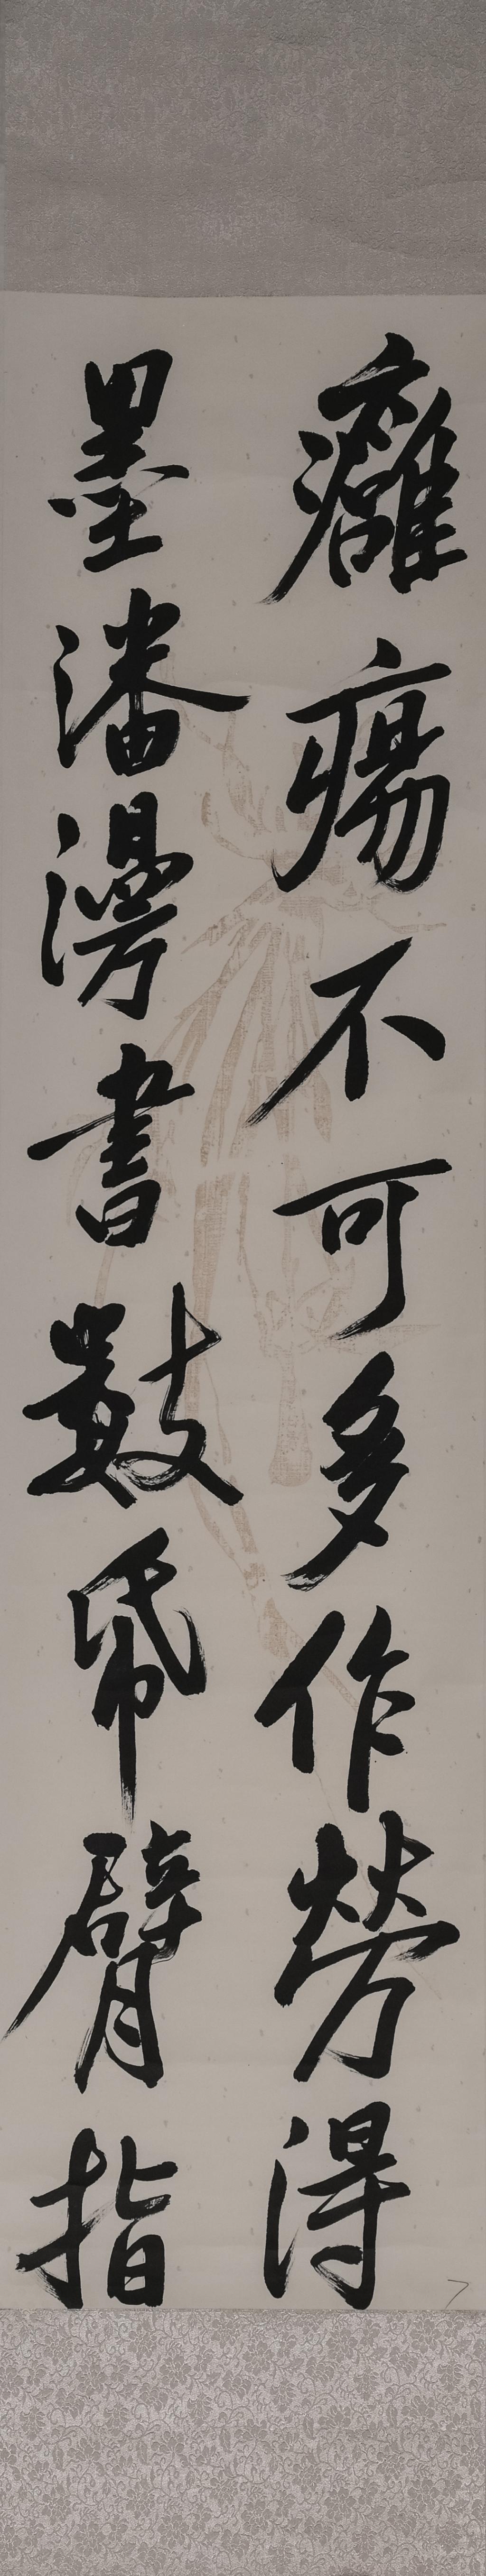 癰瘍不可多作勞得
墨潘漫書數帋臂指